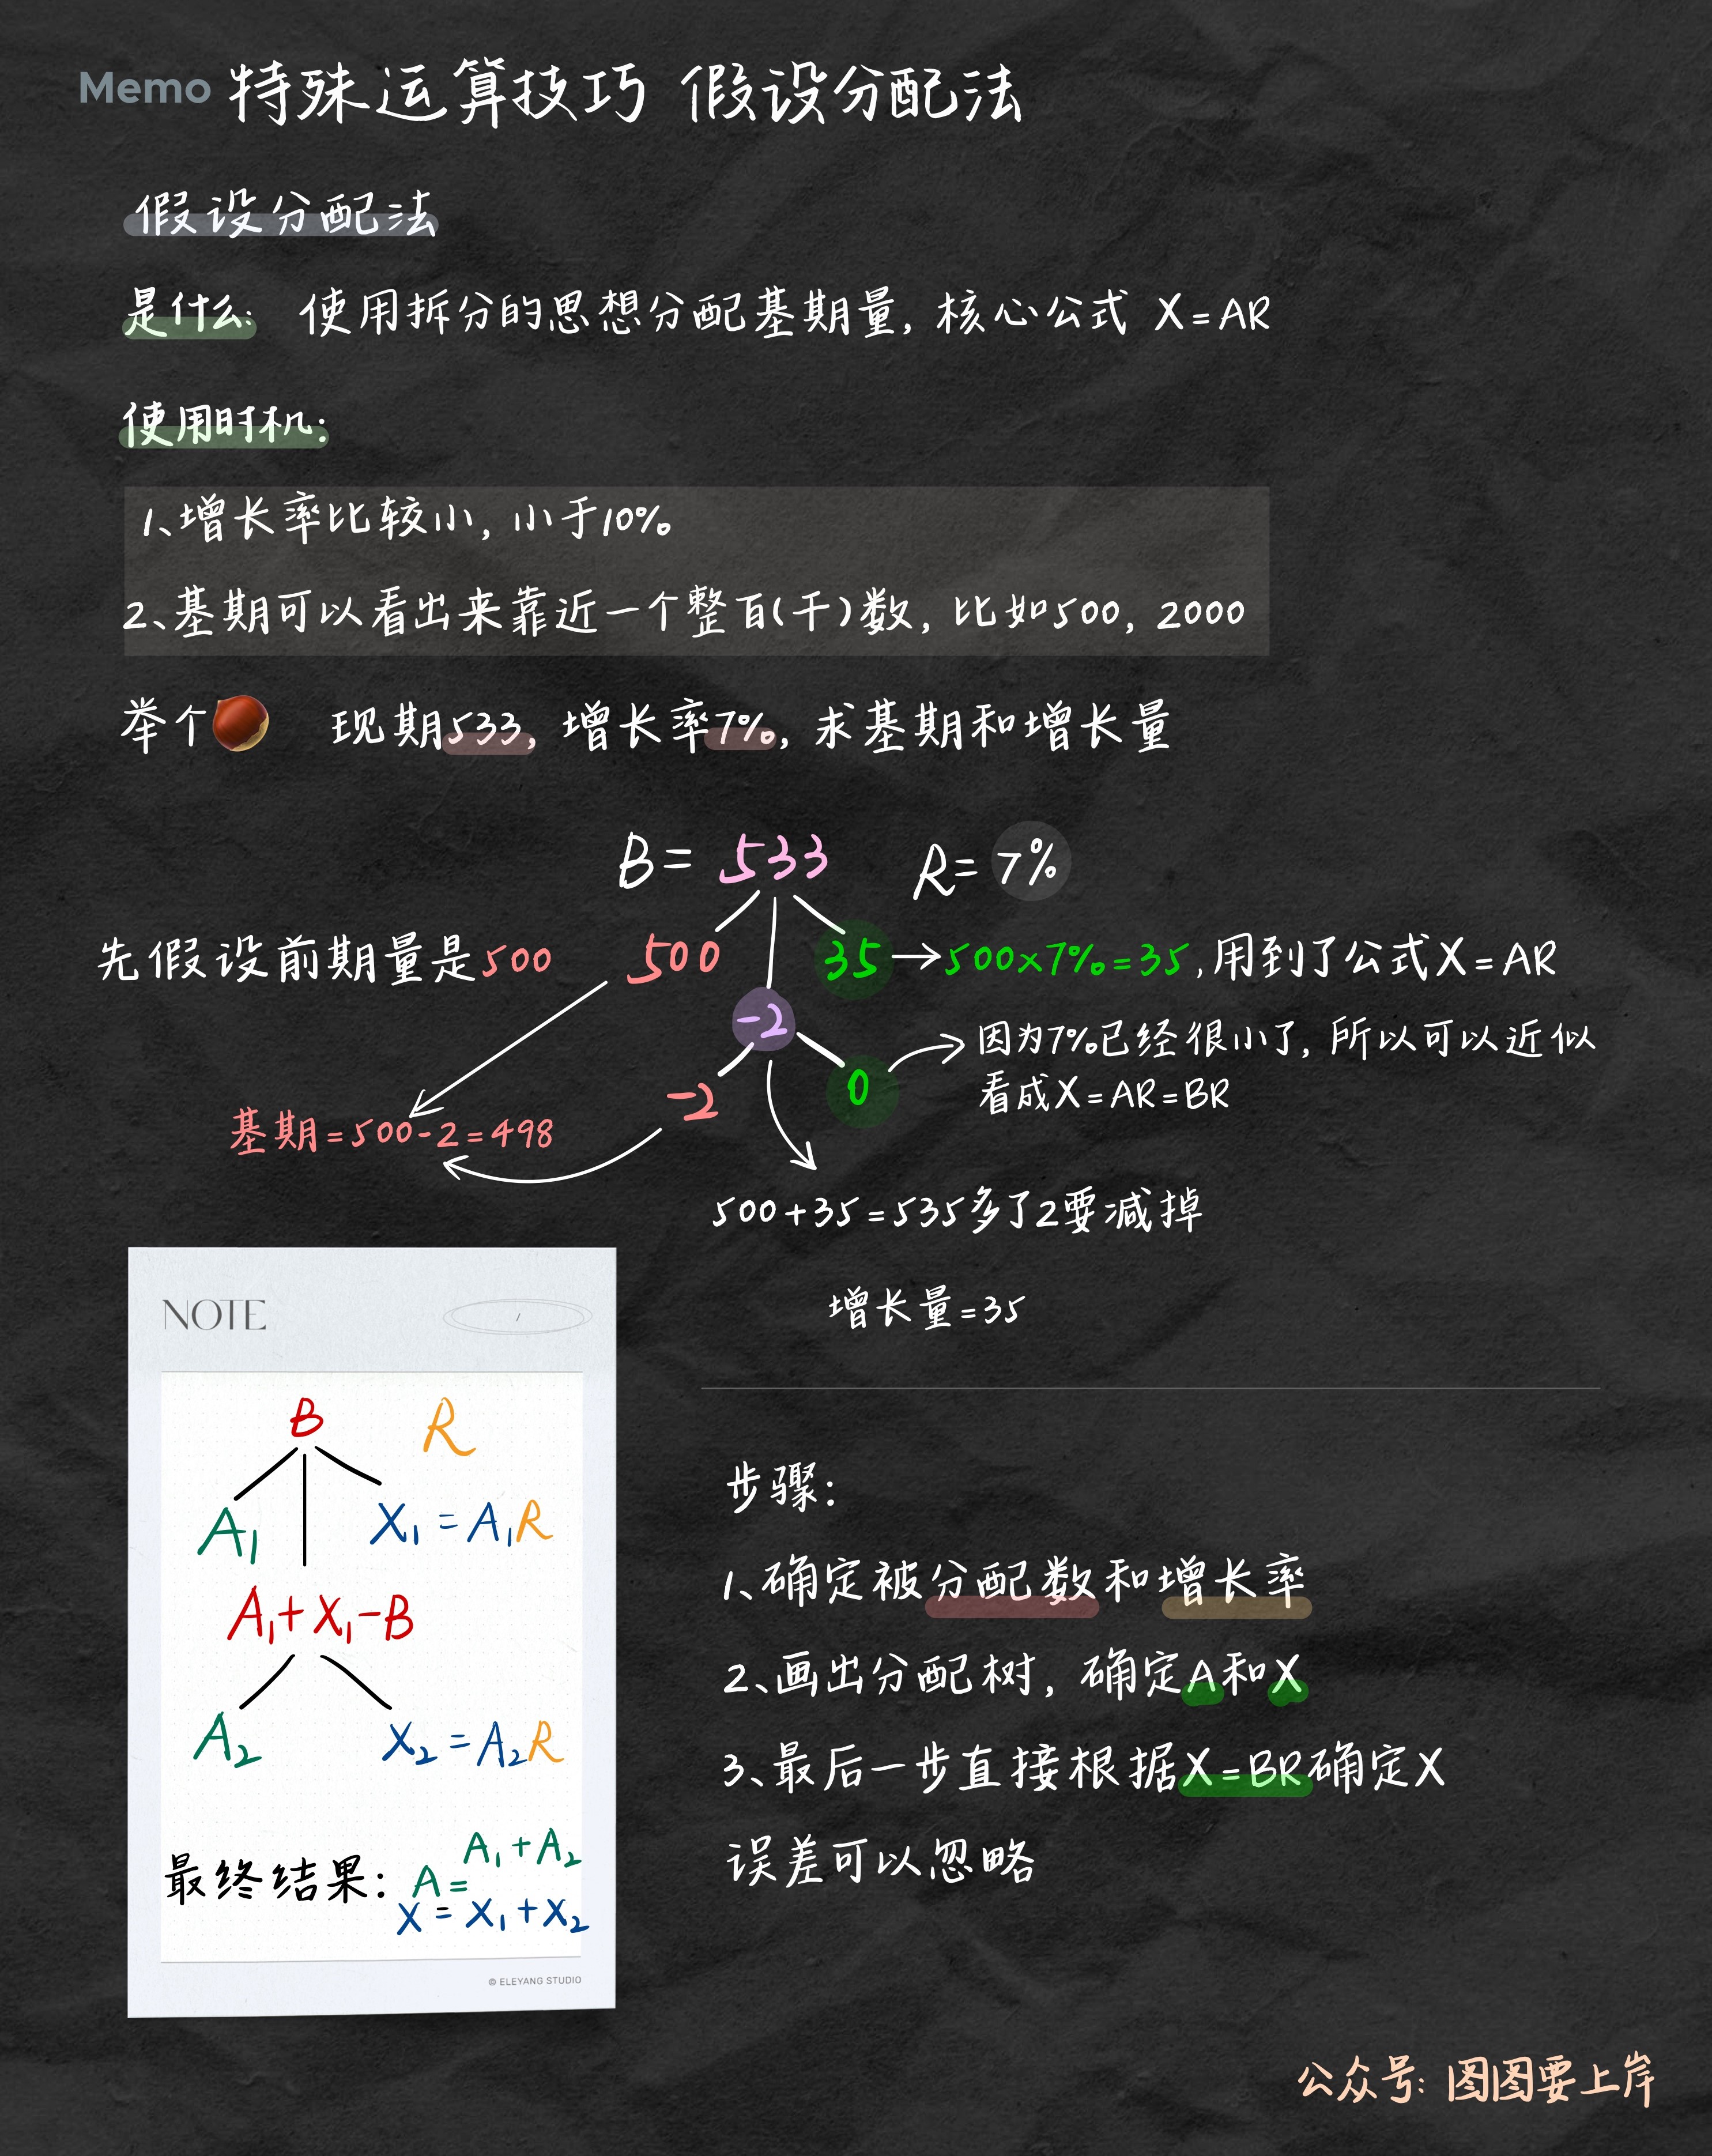 Memo 特殊运算技巧 假设分配法
假设分配法
是什么: 使用拆分的思想分配基期量, 核心公式 X=AR
使用时机:
1、增长率比较小, 小于10%
2、基期可以看出来靠近一个整百(千)数, 比如500, 2000
举个🌰 现期533, 增长率7%, 求基期和增长量
B= 533 R= 7%
先假设前期量是500 500 35 →500×7%=35, 用到了公式X=AR
-2
因为7%已经很小了, 所以可以近似
看成X=AR=BR
-2 0
基期=500-2=498
500+35=535多了2要减掉
增长量=35
NOTE
/
B R
A₁ X₁=A₁R
A₁+X₁-B
A₂ X₂=A₂R
最终结果: A=A₁+A₂
X=X₁+X₂
© ELEYANG STUDIO
步骤:
1、确定被分配数和增长率
2、画出分配树, 确定A和X
3、最后一步直接根据X=BR确定X
误差可以忽略
公众号: 图图要上岸